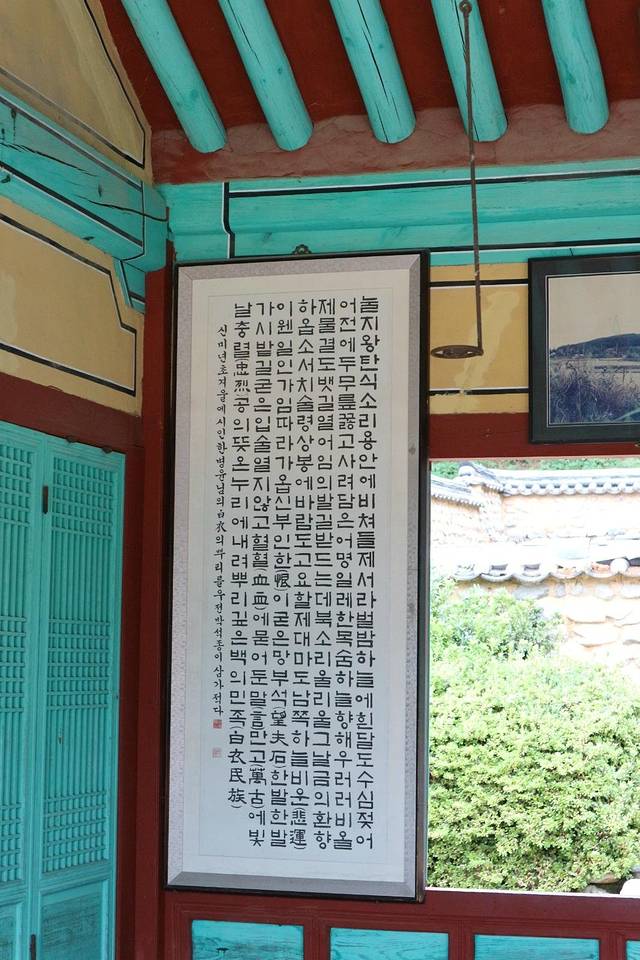 눌지왕탄식소리용안에비쳐들제서라벌밤하늘에흰달도수심젖어
어전에두무릎꿇고사려담은어명일레한목숨하늘향해우러러비올
제물결도뱃길열어임의발길받드는데북소리울리울그날금의환향
하옵소서치술령상봉에바람도고요할제대마도남쪽하늘비운(悲運)
이웬일인가임따라가옵신부인한(恨)이굳은망부석(望夫石)한발한발
가시밭길굳은입술열지않고혈혈(血血)에묻어둔말(言)만고(萬古)에빛
날충렬(忠烈)공의뜻온누리에내려뿌리깊은백의민족(白衣民族)
신미년초겨울에시인한병윤님의白衣의뿌리를우전박석동이삼가적다